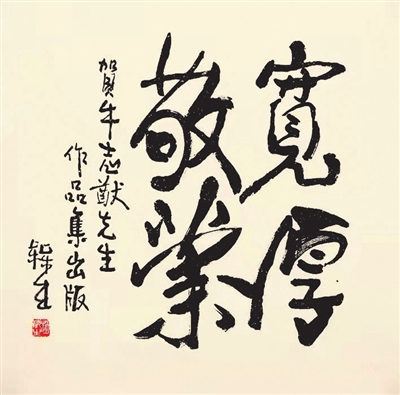 寬厚
敬業
賀牛志猷先生
作品集出版